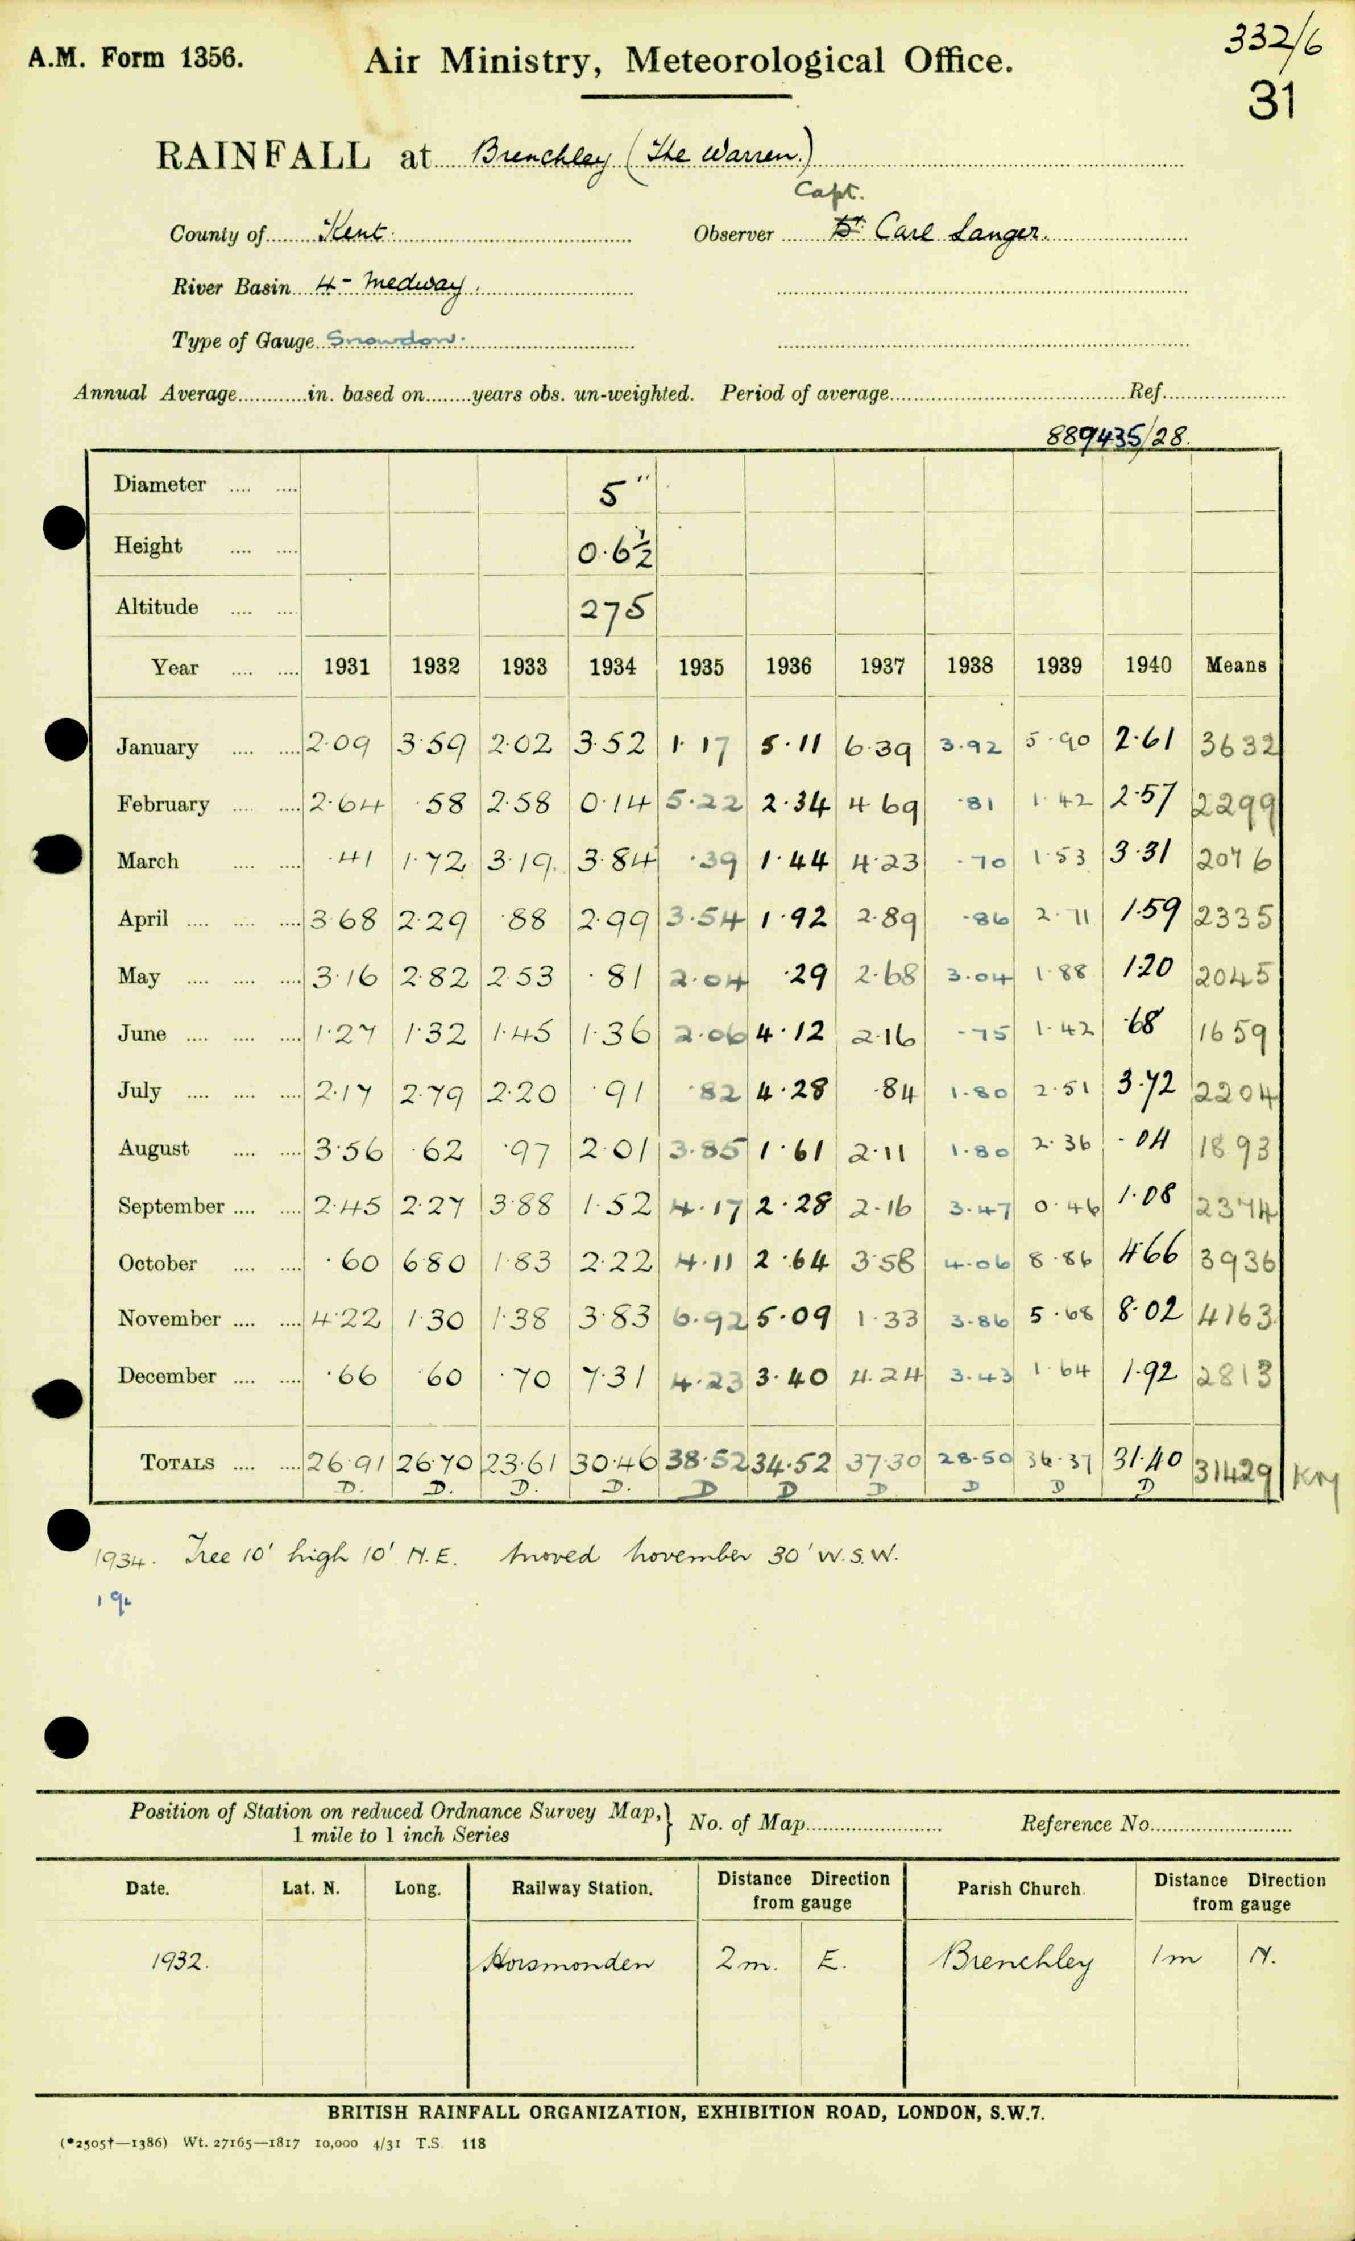 332/6
A.M. Form 1356. Air Ministry, Meteorological Office.
31
RAINFALL at Brenchley (The Warren.)
Capt.
County of Kent. Observer Dr. Carl Langer.
River Basin 4 - Medway.
Type of Gauge Snowdon.
Annual Average in. based on years obs. un-weighted. Period of average Ref.
889435/28.
Diameter 5"
Height 0.6½
Altitude 275
Year 1931 1932 1933 1934 1935 1936 1937 1938 1939 1940 Means
January 2.09 3.59 2.02 3.52 1.17 5.11 6.39 3.92 5.90 2.61 3632
February 2.64 .58 2.58 0.14 5.22 2.34 4.69 .81 1.42 2.57 2299
March .41 1.72 3.19 3.84 .39 1.44 4.23 .70 1.53 3.31 2076
April 3.68 2.29 .88 2.99 3.54 1.92 2.89 .86 2.71 1.59 2335
May 3.16 2.82 2.53 .81 2.04 .29 2.68 3.04 1.88 1.20 2045
June 1.27 1.32 1.45 1.36 2.06 4.12 2.16 .75 1.42 .68 1659
July 2.17 2.79 2.20 .91 .82 4.28 .84 1.80 2.51 3.72 2204
August 3.56 .62 .97 2.01 3.85 1.61 2.11 1.80 2.36 .04 1893
September 2.45 2.27 3.88 1.52 4.17 2.28 2.16 3.47 0.46 1.08 2374
October .60 6.80 1.83 2.22 4.11 2.64 3.58 4.06 8.86 4.66 3936
November 4.22 1.30 1.38 3.83 6.92 5.09 1.33 3.86 5.68 8.02 4163
December .66 .60 .70 7.31 4.23 3.40 4.24 3.43 1.64 1.92 2813
TOTALS 26.91 26.70 23.61 30.46 38.52 34.52 37.30 28.50 36.37 31.40 31429
D. D. D. D. D D D D D D
1934. Tree 10' high 10' N.E. Moved november 30' W.S.W.
Position of Station on reduced Ordnance Survey Map, } No. of Map Reference No.
1 mile to 1 inch Series
Date. Lat. N. Long. Railway Station. Distance Direction from gauge Parish Church Distance Direction from gauge
1932. Horsmonden 2 m. E. Brenchley 1 m N.
BRITISH RAINFALL ORGANIZATION, EXHIBITION ROAD, LONDON, S.W.7.
(*2505†—1386) Wt. 27165—1817 10,000 4/31 T.S. 118